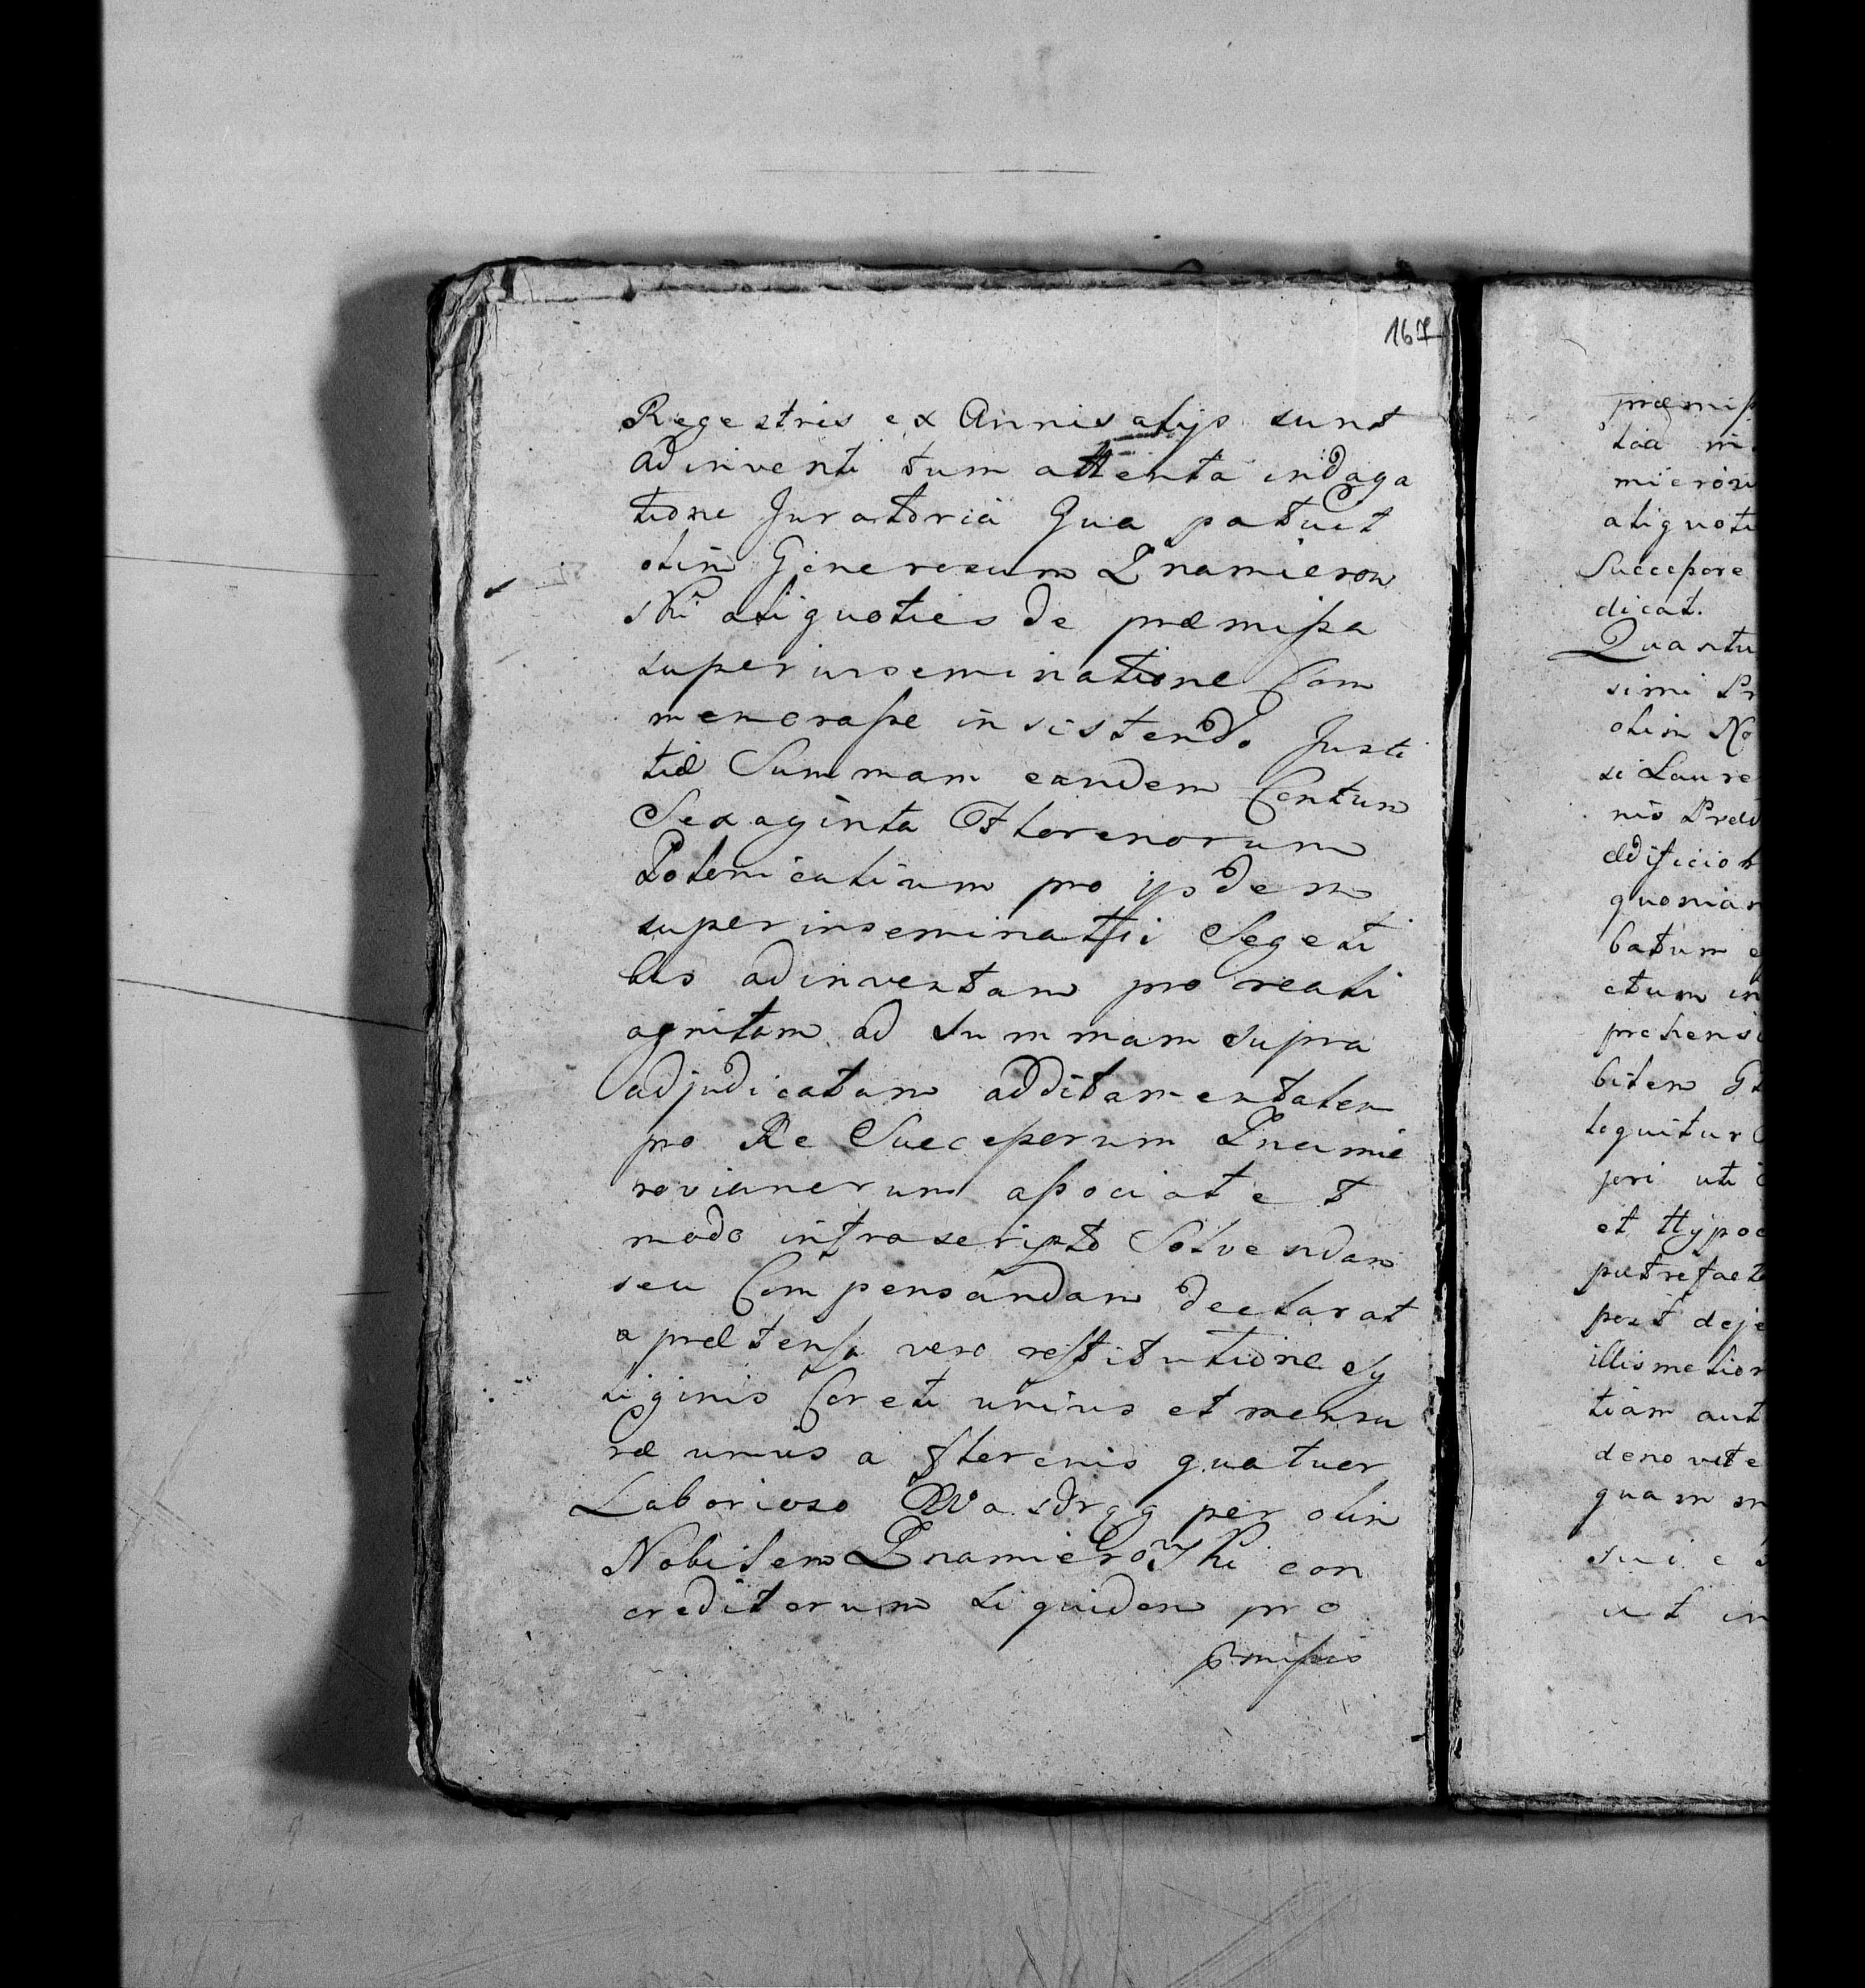 167
Regestris ex Annis alijs sunt
adinventi tum attenta indaga
tione Juratoria Qua patuit
olim Generosum Znamierow
ski aliquoties de præmissa
superinseminatione Com
memorasse insistendo Justi
tiæ Summam eandem Centum
Sexaginta Florenorum
Polonicalium pro ijsdem
superinseminatti Segeti
bus adinventam pro reali
agnitam ad summam supra
adjudicatam additamentalem
pro Re Successorum Znamie
rovianorum associat et
modo infrascripto Solvendam
seu Compensandam declarat
a prætensa vero restitutione Sy
liginis Coreti unius et mensu
ræ unius a florenis quatuor
Laborioso per olim
Nobilem Znamierowski con
creditorum siquidem pro
præmissis
præmiss
tia in
mierow
aliquoti
Successore
dicat.
Quantu
simi Pr
olim No
si Laure
nis Præd
ædificior
quoniam
batum e
ctum in
prehensi
bilem G
loquitur
jori uti
et Hypoc
putrefact
post deje
illis melior
tiam aut
deno vet e
quam m
sui e
ut in